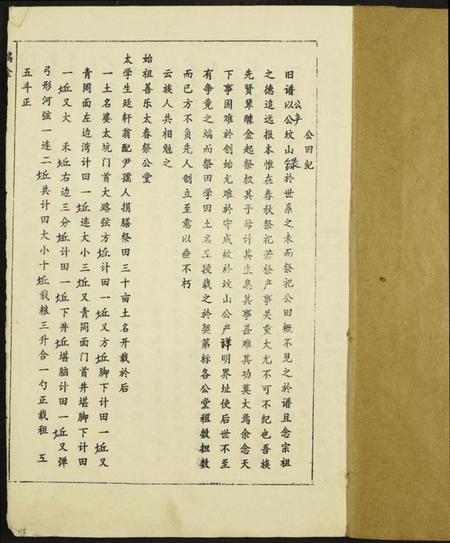 公田紀
舊譜以公坟山錄於世系之末而祭祀公田概不見之於譜且念宗祖
公产
之德追遠报本惟在春秋祭祀若祭产事关重大尤不可不纪也吾族
先賢輩醵金起祭权其子母計其生息其事甚难其功莫大焉余念天
下事困难於创始尤难於守成故於坟山公产詳明界址使后世不至
有争竟之端而祭田学田土名五段载之於契第标各公堂租数担数
而已方不負先人创立至意以垂不朽
云族人共相勉之
始祖善乐太春祭公堂
太学生廷軒翁配尹孺人捐膳祭田三十亩土名开载於后
一土名婆太坑门首大路弦方坵計田一坵又方坵脚下計田一坵又
青岡面左边湾計田一坵連大小三坵又青岡面门首井堪脚下計田
一坵又大 禾坵右边三分坵計田一坵下井坵堪脑計田一坵又弹
弓形河弦一連二坵共計田大小十坵载粮三升合一勺正载租 五
五斗正